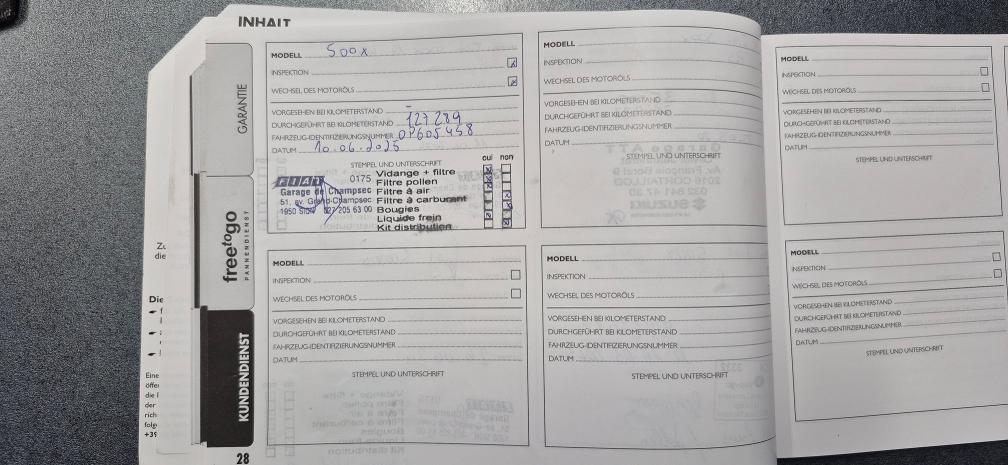 INHALT
GARANTIE
freetogo
PANNENDIENST
KUNDENDIENST
28
MODELL 500x
INSPEKTION
WECHSEL DES MOTORÖLS
VORGESEHEN BEI KILOMETERSTAND
DURCHGEFÜHRT BEI KILOMETERSTAND 127289
FAHRZEUG-IDENTIFIZIERUNGSNUMMER OP605458
DATUM 10.06.2025
STEMPEL UND UNTERSCHRIFT
oui non
FIAT 0175
Garage de Champsec
51, av. Grand-Champsec
1950 SION 027 205 63 00
Vidange + filtre
Filtre pollen
Filtre à air
Filtre à carburant
Bougies
Liquide frein
Kit distribution
MODELL
INSPEKTION
WECHSEL DES MOTORÖLS
VORGESEHEN BEI KILOMETERSTAND
DURCHGEFÜHRT BEI KILOMETERSTAND
FAHRZEUG-IDENTIFIZIERUNGSNUMMER
DATUM
STEMPEL UND UNTERSCHRIFT
MODELL
INSPEKTION
WECHSEL DES MOTORÖLS
VORGESEHEN BEI KILOMETERSTAND
DURCHGEFÜHRT BEI KILOMETERSTAND
FAHRZEUG-IDENTIFIZIERUNGSNUMMER
DATUM
STEMPEL UND UNTERSCHRIFT
MODELL
INSPEKTION
WECHSEL DES MOTORÖLS
VORGESEHEN BEI KILOMETERSTAND
DURCHGEFÜHRT BEI KILOMETERSTAND
FAHRZEUG-IDENTIFIZIERUNGSNUMMER
DATUM
STEMPEL UND UNTERSCHRIFT
MODELL
INSPEKTION
WECHSEL DES MOTORÖLS
VORGESEHEN BEI KILOMETERSTAND
DURCHGEFÜHRT BEI KILOMETERSTAND
FAHRZEUG-IDENTIFIZIERUNGSNUMMER
DATUM
STEMPEL UND UNTERSCHRIFT
MODELL
INSPEKTION
WECHSEL DES MOTORÖLS
VORGESEHEN BEI KILOMETERSTAND
DURCHGEFÜHRT BEI KILOMETERSTAND
FAHRZEUG-IDENTIFIZIERUNGSNUMMER
DATUM
STEMPEL UND UNTERSCHRIFT
Die
Eine
die
der
+39